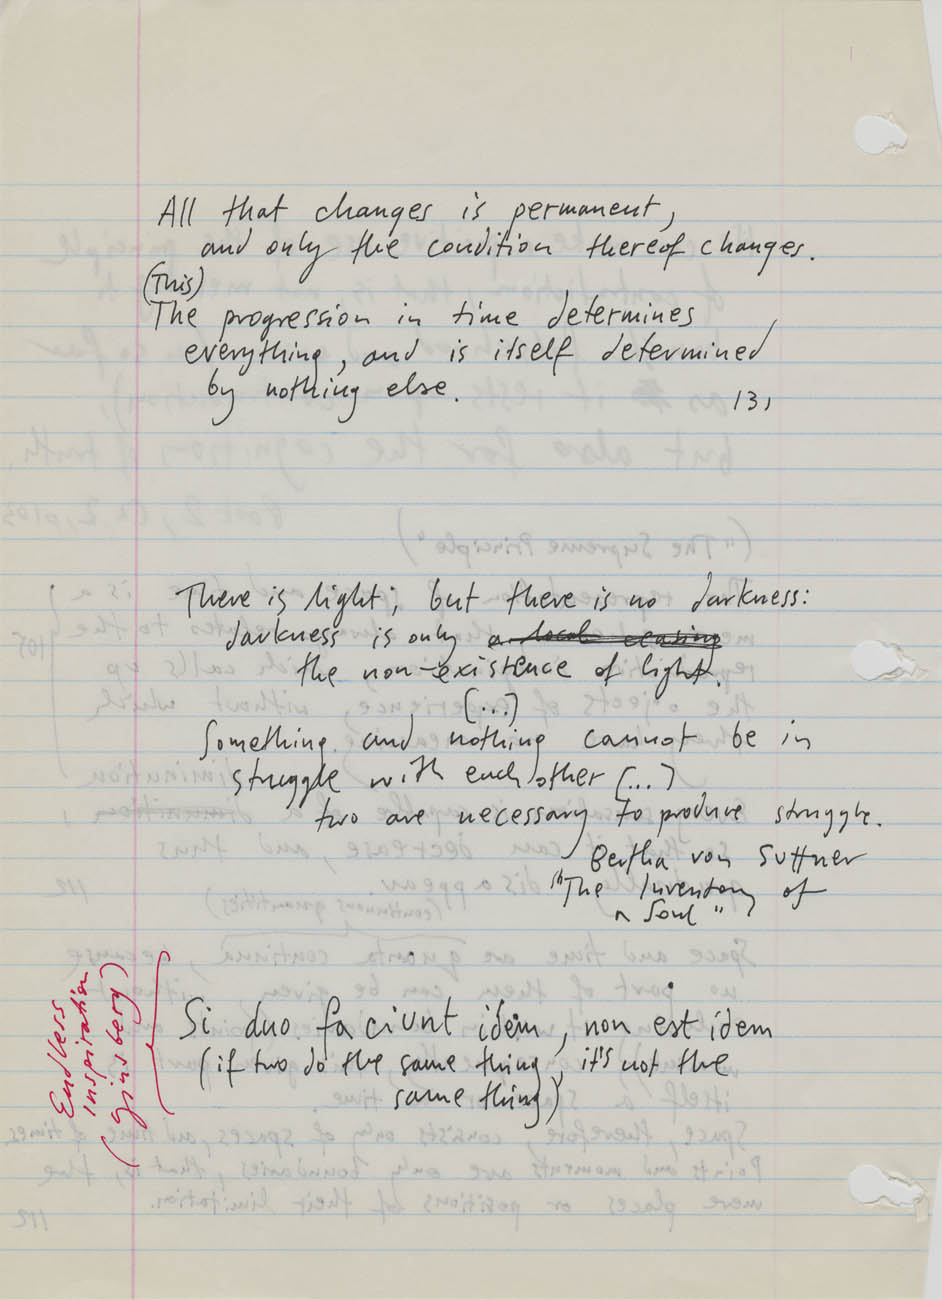 All that changes is permanent,
and only the condition thereof changes.
(This)
The progression in time determines
everything, and is itself determined
by nothing else.
131
There is light; but there is no darkness:
darkness is only
the non-existence of light.
(...)
Something and nothing cannot be in
struggle with each other (...)
two are necessary to produce struggle.
Bertha von Suttner
"The Inventory of
a Soul"
Endless
inspiration
(ginsberg)
Si duo faciunt idem, non est idem
(if two do the same thing, it's not the
same thing)